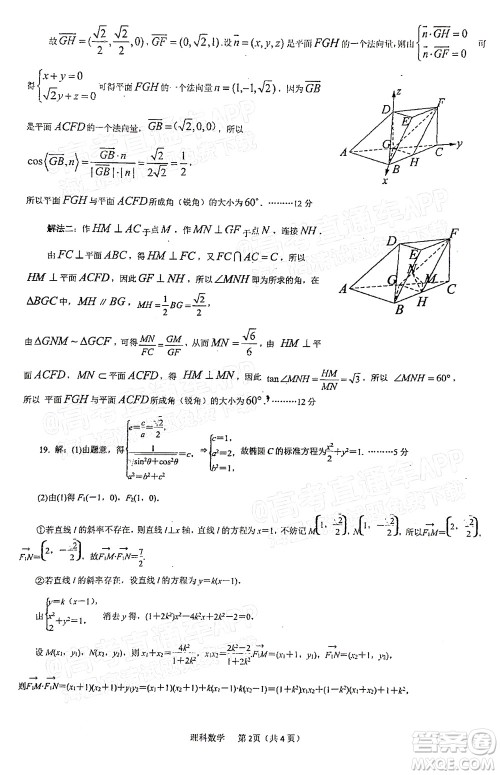 故$\overrightarrow{GH}=(\frac{\sqrt{2}}{2},\frac{\sqrt{2}}{2},0)$，$\overrightarrow{GF}=(0,\sqrt{2},1)$．设$\vec{n}=(x,y,z)$是平面FGH的一个法向量，则由$\begin{cases}\vec{n}\cdot\overrightarrow{GH}=0\\\vec{n}\cdot\overrightarrow{GF}=0\end{cases}$可
得$\begin{cases}x+y=0\\\sqrt{2}y+z=0\end{cases}$可得平面FGH的一个法向量n=(1,-1,$\sqrt{2}$)，因为$\overrightarrow{GB}$
是平面ACFD的一个法向量，$\overrightarrow{GB}=(\sqrt{2},0,0)$，所以
$\cos\langle\overrightarrow{GB},n\rangle=\frac{\overrightarrow{GB}\cdot n}{|\overrightarrow{GB}|\cdot|n|}=\frac{\sqrt{2}}{2\sqrt{2}}=\frac{1}{2}$，
所以平面FGH与平面ACFD所成角（锐角）的大小为60°．………12分
解法二：作HM⊥AC于点M，作MN⊥GF于点N，连接NH．
由FC⊥平面ABC，得HM⊥FC，又FC∩AC=C，所以
HM⊥平面ACFD，因此GF⊥NH，所以∠MNH即为所求的角，在
△BGC中，MH∥BG，$MH=\frac{1}{2}BG=\frac{\sqrt{2}}{2}$，
由△GNM∽△GCF，可得$\frac{MN}{FC}=\frac{GM}{GF}$，从而$MN=\frac{\sqrt{6}}{6}$由HM⊥平
面ACFD，MN⊂平面ACFD，得HM⊥MN，因此$\tan∠MNH=\frac{HM}{MN}=\sqrt{3}$，所
以 平面FGH与平面ACFD所成角（锐角）的大小为60°．………12分
19. 解：(1)由题意，得$\begin{cases}e=\frac{c}{a}=\frac{\sqrt{2}}{2}\\\frac{1}{\sqrt{\sin^2θ+\cos^2θ}}=1\end{cases}$⇒$\begin{cases}c=1\\a^2=2\\b^2=1\end{cases}$，故椭圆C的标准方程为$\frac{x^2}{2}+y^2=1$.………5分
(2)由(1)得F₁(－1，0)，F₂(1，0)．
①若直线l的斜率不存在，则直线l⊥x轴，直线l的方程为x=1，不妨记M$(1,\frac{\sqrt{2}}{2})$，N$(1,-\frac{\sqrt{2}}{2})$，所以$\overrightarrow{F_1M}=(2,\frac{\sqrt{2}}{2})$，$\overrightarrow{F_1N}=$
$(2,-\frac{\sqrt{2}}{2})$，故$\overrightarrow{F_1M}\cdot\overrightarrow{F_1N}=\frac{7}{2}$.
②若直线l的斜率存在，设直线l的方程为y=k(x－1)，
由$\begin{cases}y=k(x-1)\\\frac{x^2}{2}+y^2=1\end{cases}$，消去y得，(1+2k²)x²－4k²x+2k²－2=0，
设M(x₁，y₁)，N(x₂，y₂)，则$x_1+x_2=\frac{4k^2}{1+2k^2}$，$x_1x_2=\frac{2k^2-2}{1+2k^2}$.$\overrightarrow{F_1M}=(x_1+1,y_1)$，$\overrightarrow{F_1N}=(x_2+1,y_2)$，
则$\overrightarrow{F_1M}\cdot\overrightarrow{F_1N}$=(x₁+1)(x₂+1)+y₁y₂=(x₁+1)(x₂+1)+k(x₁－1)·k(x₂－1)=(1+k²)x₁x₂+(1－k²)(x₁+x₂)+1+k²
理科数学 第2页（共4页）